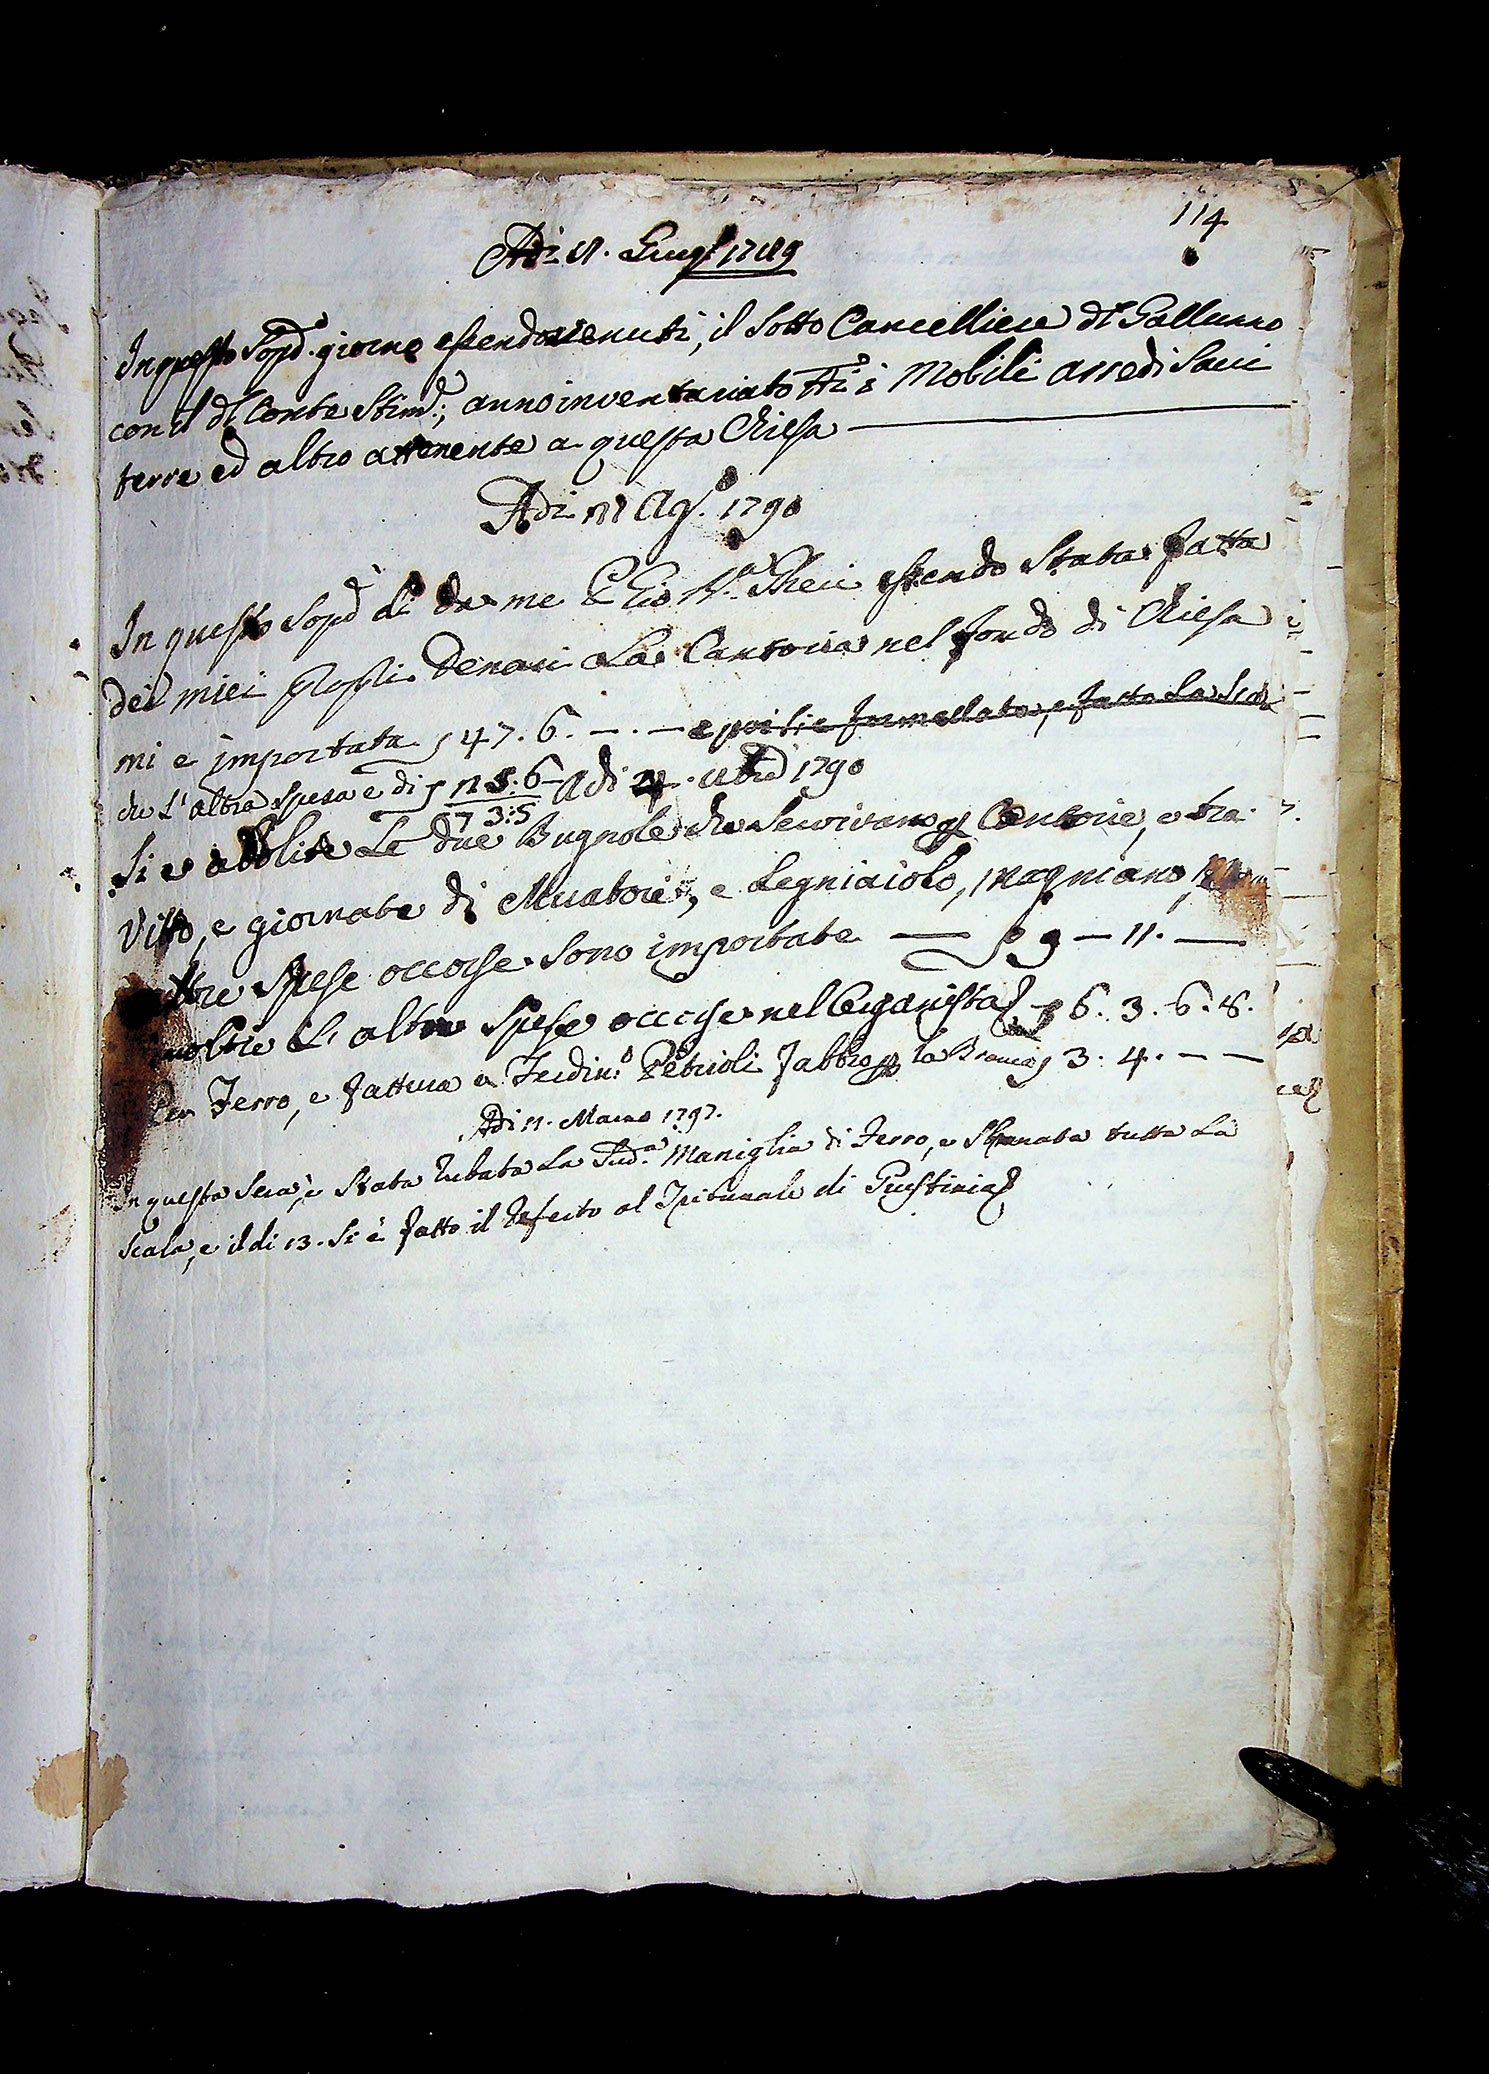 114
Adi 11. Giug.o 1789
In questo Sopd.o giorno essendo venuti, il Sotto Cancelliere di Galluno
con il Conte Stim.e; anno inventariato tti i Mobili arredi Sacri
terre ed altro attenente a questa Chiesa
Adi 31 Ag.o 1790
In questo Sopd.o di da me P. Gio. essendo Stata fatta
dei miei proprij Denari La Cantoria nel fondo di Chiesa
mi e importata £ 47. 6. — . — e poi si e Inmellata, e fatta La Sca
che L'altra spesa e di £ 25:6 Adi 4. 1790
73:5
Si e abolite Le due Bugnole che Servivano per Cantorie, e tra
Vitto, e giornate di Muratore, e Legniaiolo, Magniano,
altre Spese occorse Sono importate — £ 9 — 11. —
inoltre L'altre Spese occorse nel Organista £ 6. 3. 6. 8.
Per Ferro, e fattura a Ferdin.o Petrioli Fabbro per la £ 3. 4. — —
Adi 11. Marzo 1797.
In questa Sera, è Stata Rubata La Sud.a Maniglia di Ferro, e Spianata tutta La
Scala, e il di 13. Si è fatto il Referto al Tribunale di Giustizia